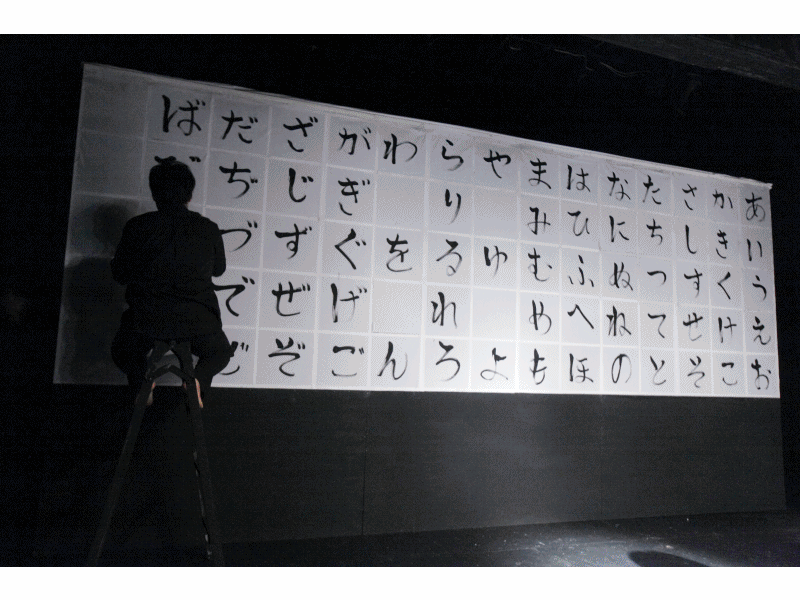 あいうえお
かきくけこ
さしすせそ
たちつてと
なにぬねの
はひふへほ
まみむめも
やゆよ
らりるれろ
わをん
がぎぐげご
ざじずぜぞ
だぢづで
ば